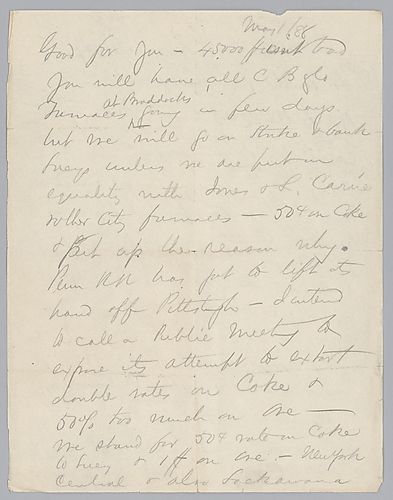 May 1/88
Good for you – 45000 first bad
you will have all C B glo
at Braddocks
Furnaces going in few days
but we will go on strike & bank
Lucys unless we are put on
equality with Jones & L. Carrie
& other City furnaces – 50¢ on Coke
& Pitt up the reason why.
Penn RR has got to lift its
hand off Pittsburgh – I intend
to call a Public Meeting to
expose its attempt to extort
double rates on Coke &
50% too much on ore –
We stand for 50¢ rate on Coke
to Lucy & 1 on ore. – New York
Central & also Lackawana